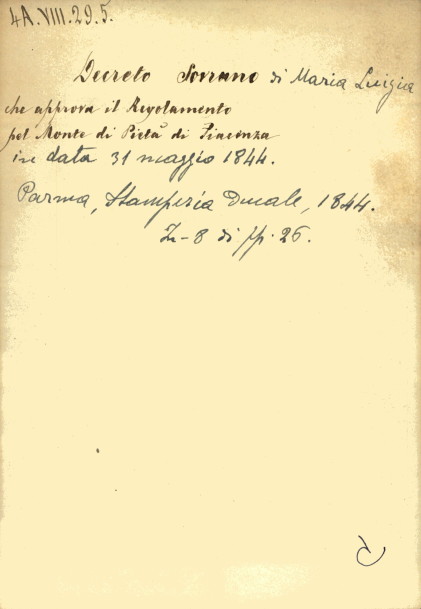 4A.VIII.29.5.
Decreto Sovrano di Maria Luigia
che approva il Regolamento
pel Monte di Pietà di Piacenza
in data 31 maggio 1844.
Parma, Stamperia Ducale, 1844.
In-8 di pp. 26.